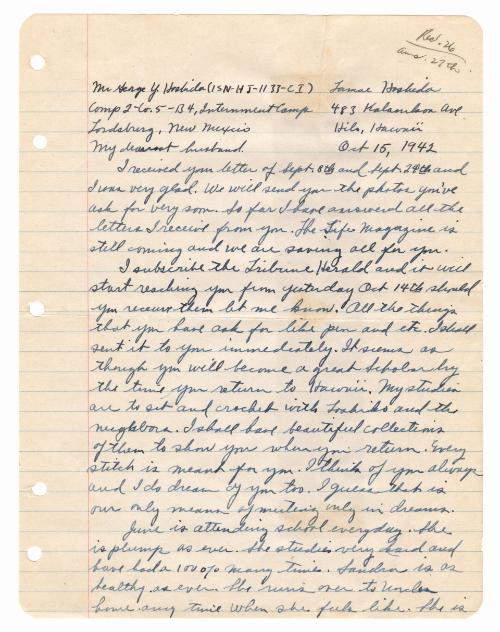 Rec. 26
ans. 27th
Mr. George Y. Hoshida (ISN-HJ-1133-CI) Tamae Hoshida
Comp 2-Co. 5-B4, Internment Camp 483 Kalanikoa Ave
Lordsburg, New Mexico Hilo, Hawaii
My dearest husband Oct 15, 1942
I received your letter of Sept. 8th and Sept. 29th and
I was very glad. We will send you the photos you've
ask for very soon. So far I have answered all the
letters I receive from you. The Life Magazine is
still coming and we are saving all for you.
I subscribe the Tribune Herald and it will
start reaching you from yesterday Oct 14th should
you receive them let me know. All the things
that you have ask for like pen and etc. I shall
sent it to you immediately. It seems as
though you will become a great scholar by
the time you return to Hawaii. My studies
are to sit and crochet with Toshiko and the
neighbors. I shall have beautiful collections
of them to show you when you return. Every
stitch is meant for you. I think of you always
and I do dream of you too. I guess that is
our only means of meeting only in dreams.
June is attending school everyday. She
is plump as ever. She studies very hard and
have had a 100% many times. Sandra is as
healthy as ever. She runs over to
home any time when she feels like. She is